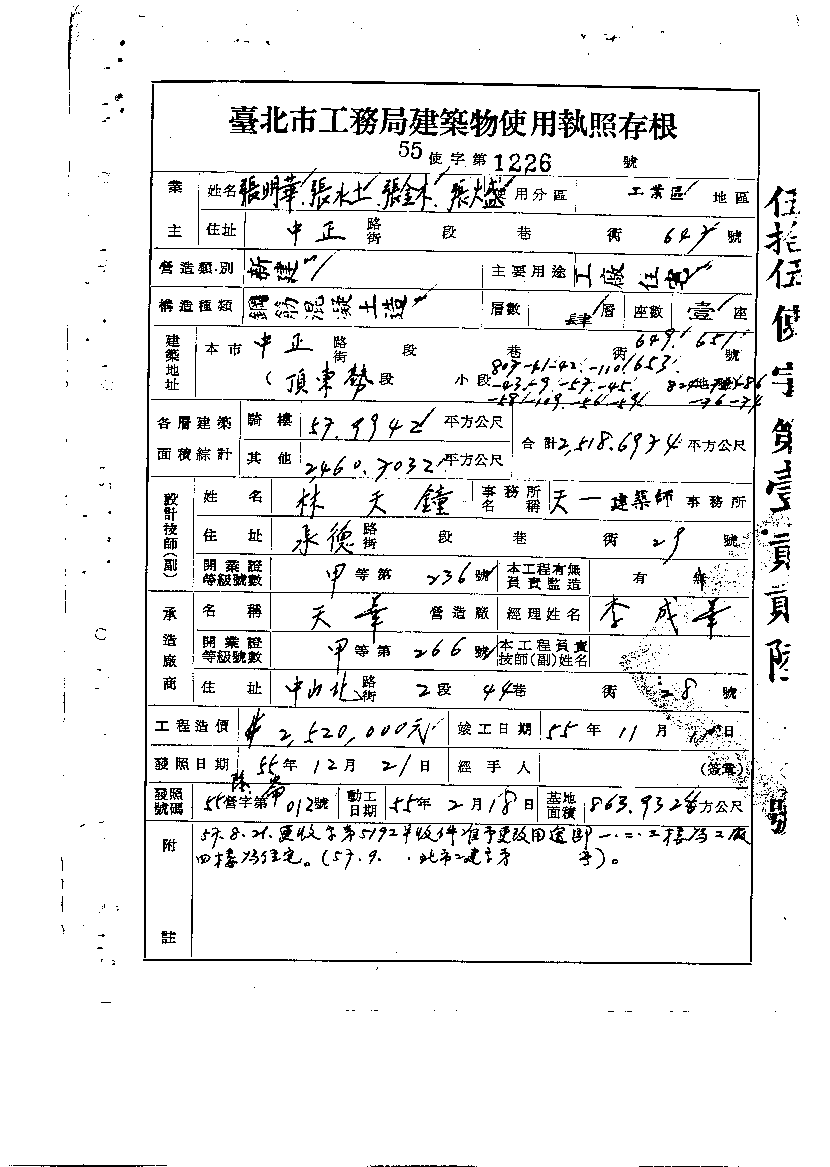 臺北市工務局建築物使用執照存根
55使字第1226號
業主 姓名 張明華、張水土、張金木、張火盛 使用分區 工業區 地區
住址 中正路街 段 巷 衖 647號
營造類別 新建 主要用途 工廠住宅
構造種類 鋼筋混凝土造 層數 肆層 座數 壹座
建築地址 本市 中正路街 段 巷 衖 649、651、653號
(頂東勢段 小段 807-41-42-110
-43-9-57-45
-58-109-56-59
各層建築面積綜計 騎樓 57.9942平方公尺 合計2,518.6974平方公尺
其他 2,460.7032平方公尺
設計技師(副) 姓名 林天鐘 事務所名稱 天一建築師事務所
住址 承德路街 段 巷 衖 29號
開業證等級號數 甲等第236號 本工程有無負責監造 有 無
承造廠商 名稱 天華 營造廠 經理姓名 李成華
開業證等級號數 甲等第266號 本工程負責技師(副)姓名
住址 中山北路街 2段 44巷 衖 28號
工程造價 $2,520,000元 竣工日期 55年11月 日
發照日期 55年12月21日 經手人 (簽章)
發照號碼 55營字第012號 動工日期 55年2月18日 基地面積 863.932平方公尺
附註 57.8.21.更收字第5192號收件准予更改用途即一.二.三樓為工廠
四樓為住宅。(57.9. .北市工建字第 號)。
伍拾伍使字第壹貳貳陸號